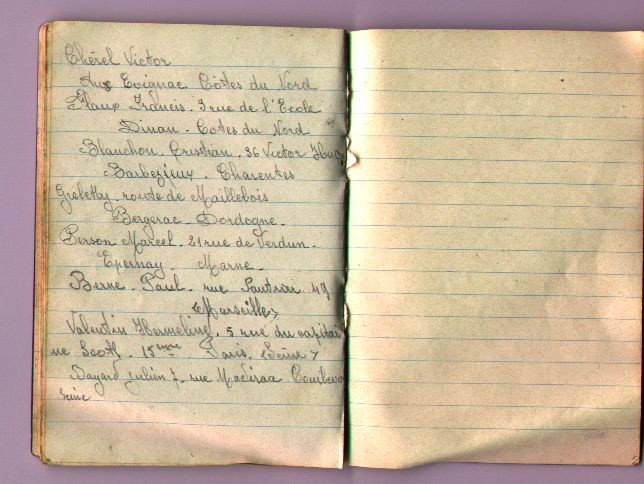 Chérel Victor
Evignac Côtes du Nord
Flaux Francis. 3 rue de l'Ecole
Dinan. Cotes du Nord
Blanchon. Cristian. 36 Victor Hugo
Barbezieux. Charentes
route de Maillebois
Bergerac. Dordogne.
Person Marcel. 21 rue de Verdun.
Epernay. Marne.
Berne. Paul. rue 49
<Marseille>
Valentin 5 rue du capitai
ne Scott. 15eme Paris. <Seine>
Bayard Julien 7. rue Madiraa. Courbevo
Seine